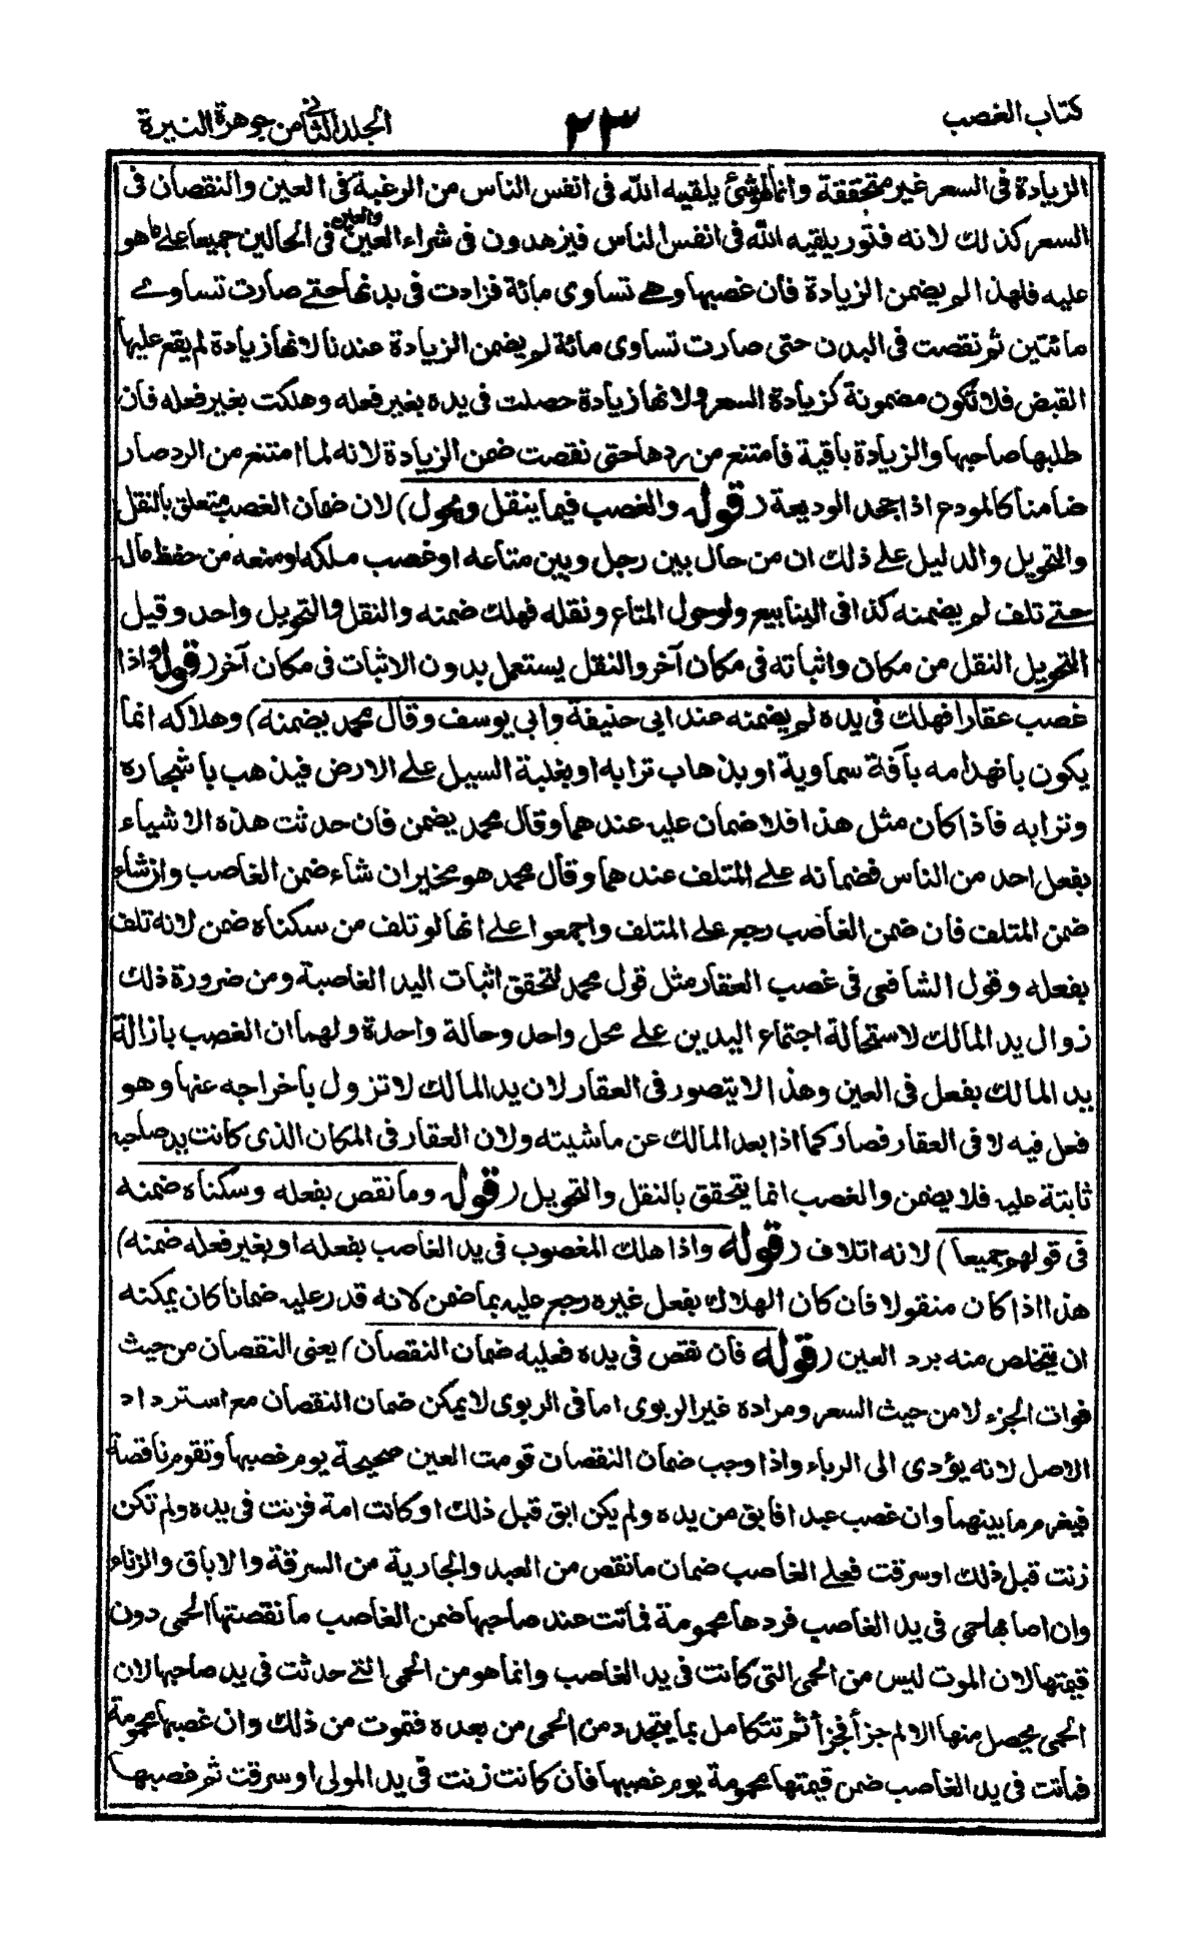 كتاب الغصب
٢٣
الجلد الثاني من جوهرة النيرة
الزيادة فى السعر غير متحققة وانما هو شئ يلقيه الله فى انفس الناس من الرغبة فى العين والنقصان فى
السعر كذلك لانه فتور يلقيه الله فى انفس الناس فيزهدون فى شراء العين والعين فى الحالين جميعا على ما هو
عليه فلهذا لم يضمن الزيادة فان غصبها وهى تساوى مائة فزادت فى بدنها حتى صارت تساوى
مائتين ثم نقصت فى البدن حتى صارت تساوى مائة لم يضمن الزيادة عندنا لانها زيادة لم يقع عليها
القبض فلا تكون مضمونة كزيادة السعر ولانها زيادة حصلت فى يده بغير فعله وهلكت بغير فعله فان
طلبها صاحبها والزيادة باقية فامتنع من ردها حتى نقصت ضمن الزيادة لانه لما امتنع من الرد صار
ضامنا كالمودع اذا جحد الوديعة (قوله والغصب فيما ينقل ويحول) لان ضمان الغصب متعلق بالنقل
والتحويل والدليل على ذلك ان من حال بين رجل وبين متاعه او غصب ملكه او منعه من حفظ ماله
حتى تلف لم يضمنه كذا فى الينابيع ولو حول المتاع ونقله فهلك ضمنه والنقل والتحويل واحد وقيل
التحويل النقل من مكان واثباته فى مكان آخر والنقل يستعمل بدون الاثبات فى مكان آخر (قوله واذا
غصب عقارا فهلك فى يده لم يضمنه عند ابى حنيفة وابى يوسف وقال محمد يضمنه) وهلاكه انما
يكون بانهدامه بآفة سماوية او بذهاب ترابه او بغلبة السيل على الارض فيذهب باشجاره
وترابه فاذا كان مثل هذا فلا ضمان عليه عندهما وقال محمد يضمن فان حدثت هذه الاشياء
بفعل احد من الناس فضمانه على المتلف عندهما وقال محمد هو مخير ان شاء ضمن الغاصب وان شاء
ضمن المتلف فان ضمن الغاضب رجع على المتلف واجمعوا على انها لو تلف من سكناه ضمن لانه تلف
بفعله وقول الشافعى فى غصب العقار مثل قول محمد لتحقق اثبات اليد الغاصبة ومن ضرورة ذلك
زوال يد المالك لاستحالة اجتماع اليدين على محل واحد وحالة واحدة ولهما ان الغصب بازالة
يد المالك بفعل فى العين وهذا لا يتصور فى العقار لان يد المالك لا تزول باخراجه عنها وهو
فعل فيه لا فى العقار فصار كما اذا بعد المالك عن ماشيته ولان العقار فى المكان الذى كانت يد صاحبه
ثابتة عليه فلا يضمن والغصب انما يتحقق بالنقل والتحويل (قوله وما نقص بفعله وسكناه ضمنه
فى قولهم جميعا) لانه اتلاف (قوله واذا هلك المغصوب فى يد الغاصب بفعله او بغير فعله ضمنه)
هذا اذا كان منقولا فان كان الهلاك بفعل غيره رجع عليه بما ضمن لانه قدر عليه ضمانا كان يمكنه
ان يتخلص منه برد العين (قوله فان نقص فى يده فعليه ضمان النقصان) يعنى النقصان من حيث
فوات الجزء لا من حيث السعر ومراده غير الربوى اما فى الربوى لا يمكن ضمان النقصان مع استرداد
الاصل لانه يؤدى الى الرباء واذا وجب ضمان النقصان قومت العين صحيحة يوم غصبها وتقوم ناقصة
فيغرم ما بينهما وان غصب عبدا فابق من يده ولم يكن ابق قبل ذلك او كانت امة فزنت فى يده ولم تكن
زنت قبل ذلك او سرقت فعلى الغاصب ضمان ما نقص من العبد والجارية من السرقة والاباق والزناء
وان اصابها حمى فى يد الغاصب فردها محمومة فماتت عند صاحبها ضمن الغاصب ما نقصتها الحمى دون
قيمتها لان الموت ليس من الحمى التى كانت فى يد الغاصب وانما هو من الحمى التى حدثت فى يد صاحبها لان
الحمى يحصل منها الالم جزأ فجزأ ثم تتكامل بما يتجدد من الحمى من بعده فتموت من ذلك وان غصبها محمومة
فماتت فى يد الغاصب ضمن قيمتها محمومة يوم غصبها فان كانت زنت فى يد المولى او سرقت ثم غصبها